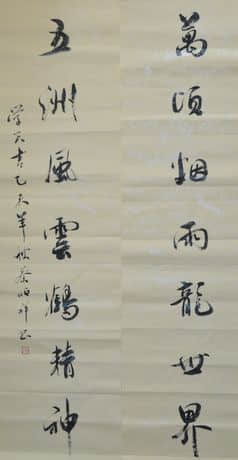 萬頃烟雨龍世界
五洲風雲鶴精神